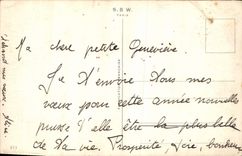 S.B.W.
PARIS
Ma chère petite Geneviève
Je t'envoie tous mes
vœux pour cette année nouvelle
puisse t'elle être la plus belle
de ta vie. Prospérité, Joie, bonheur